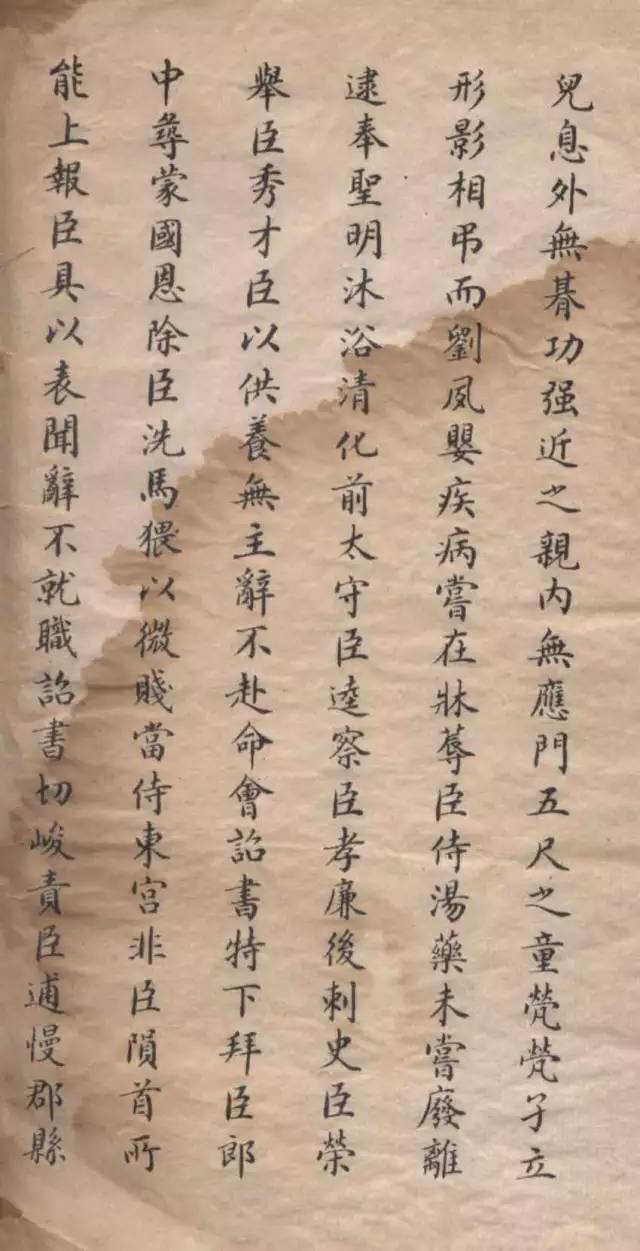 兒息外無朞功强近之親內無應門五尺之童煢煢孑立
形影相弔而劉夙嬰疾病嘗在牀蓐臣侍湯藥未嘗廢離
逮奉聖明沐浴清化前太守臣逵察臣孝廉後刺史臣榮
舉臣秀才臣以供養無主辭不赴命會詔書特下拜臣郎
中尋蒙國恩除臣洗馬猥以微賤當侍東宮非臣隕首所
能上報臣具以表聞辭不就職詔書切峻責臣逋慢郡縣